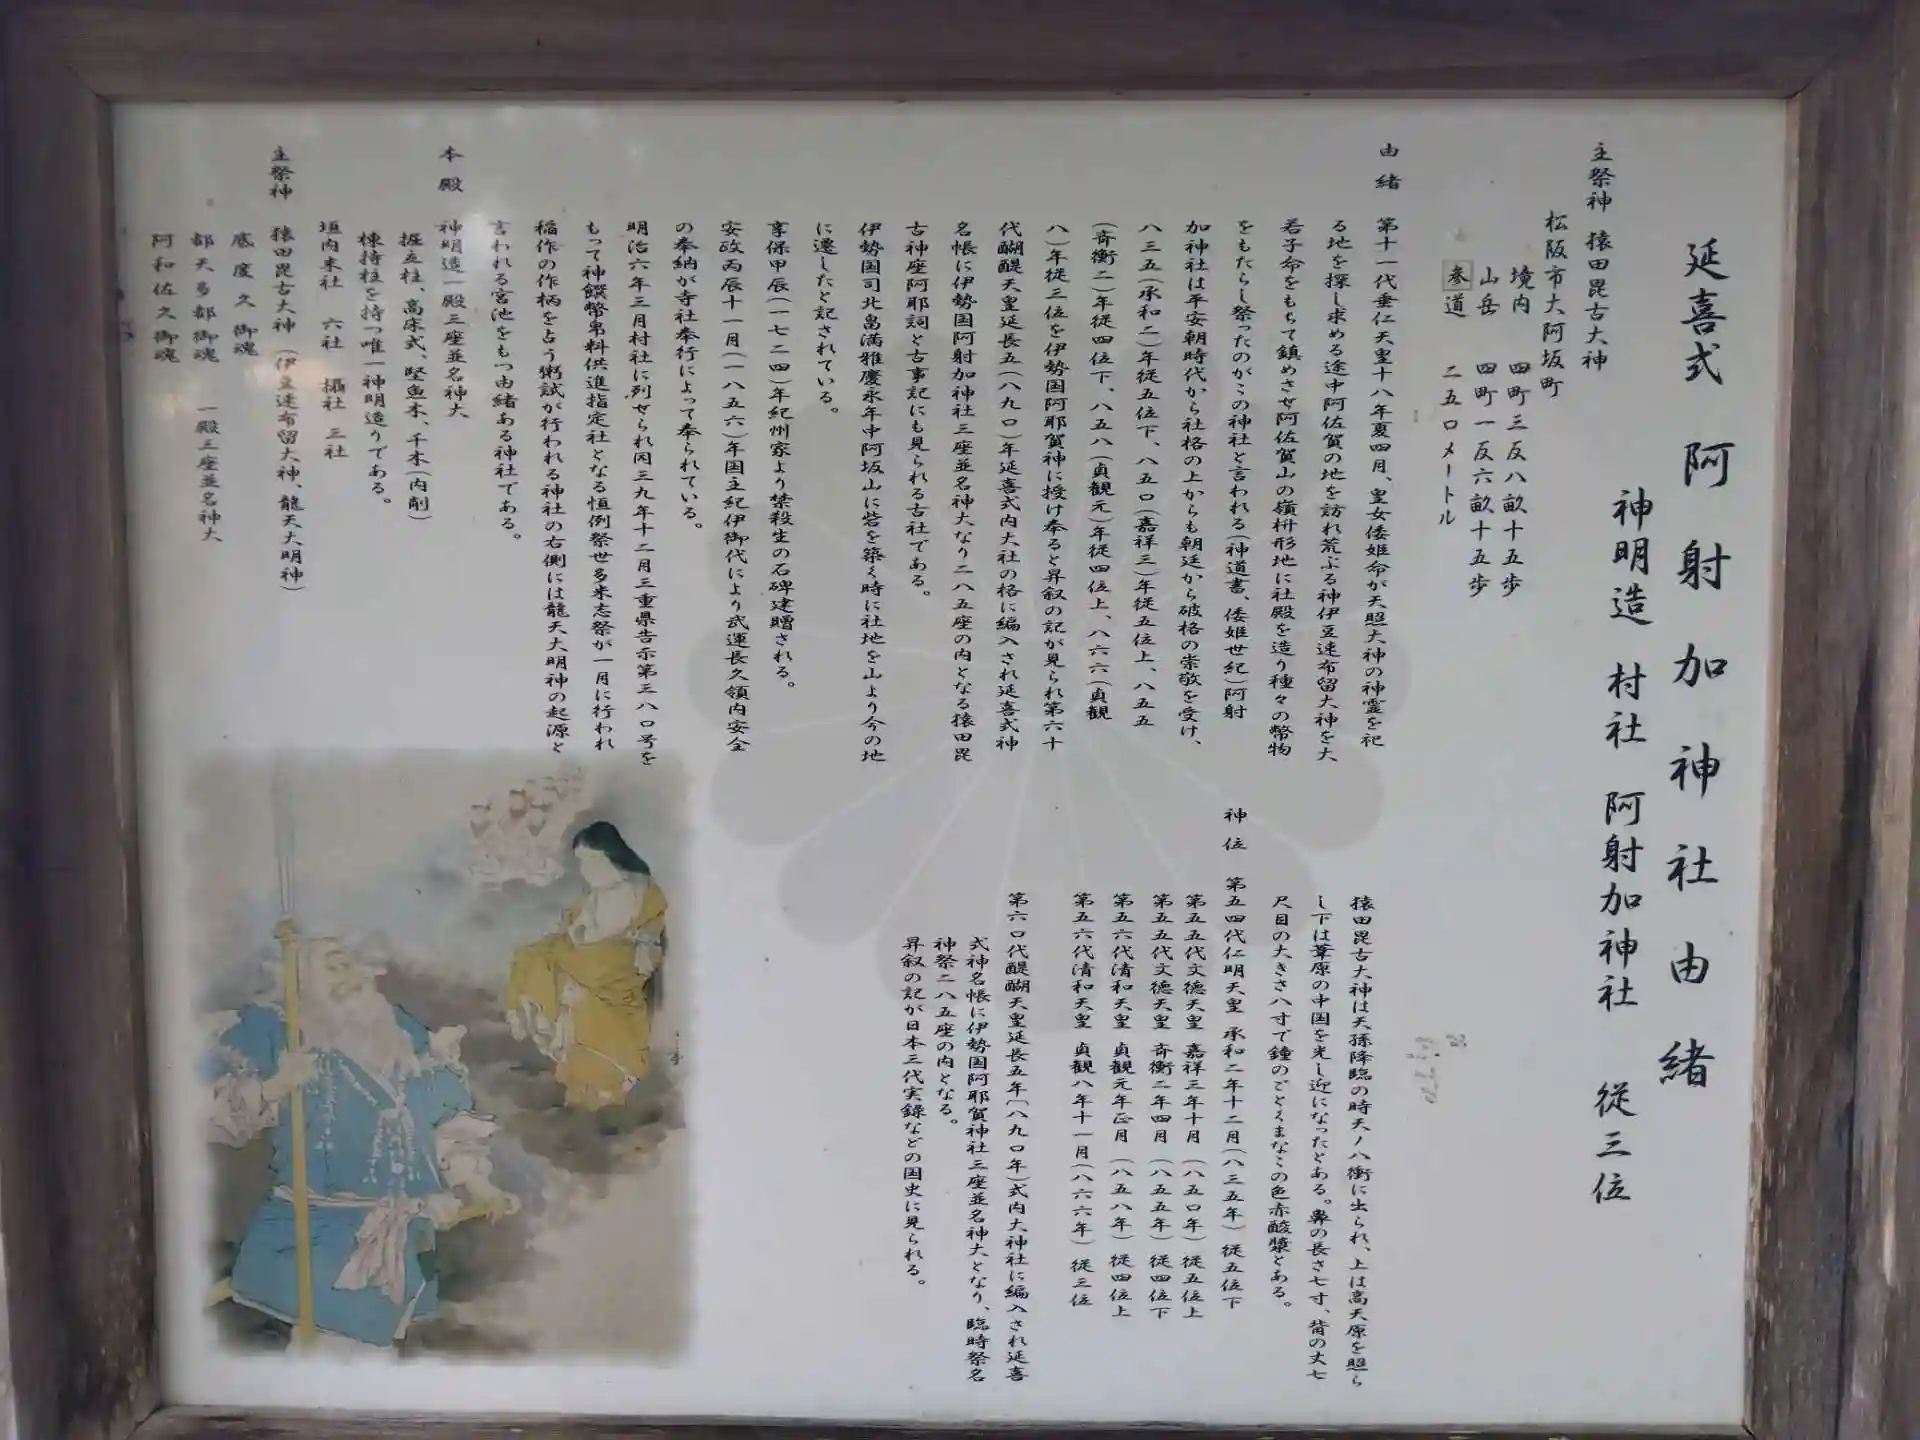 延喜式 阿射加神社由緒
神明造 村社 阿射加神社 従三位
主祭神 猿田毘古大神
松阪市大阿坂町
境内 四町三反八畝十五歩
山岳 四町一反六畝十五歩
参道 二五〇メートル
由緒 第十一代垂仁天皇十八年夏四月、皇女倭姫命が天照大神の神霊を祀
る地を探し求める途中阿佐賀の地を訪れ荒ぶる神伊豆速布留大神を大
若子命をもちて鎮めさせ阿佐賀山の嶺枡形地に社殿を造り種々の幣物
をもたらし祭ったのがこの神社と言われる(神道書、倭姫世紀)阿射
加神社は平安朝時代から社格の上からも朝廷から破格の崇敬を受け、
八三五(承和二)年従五位下、八五〇(嘉祥三)年従五位上、八五五
(斉衡二)年従四位下、八五八(貞観元)年従四位上、八六六(貞観
八)年従三位を伊勢国阿耶賀神に授け奉ると昇叙の記が見られ第六十
代醐醍天皇延長五(八九〇)年延喜式内大社の格に編入され延喜式神
名帳に伊勢国阿射加神社三座並名神大なり二八五座の内となる猿田毘
古神座阿耶詞と古事記にも見られる古社である。
伊勢国司北畠満雅慶永年中阿坂山に砦を築く時に社地を山より今の地
に遷したと記されている。
享保甲辰(一七二四)年紀州家より禁殺生の石碑建贈される。
安政丙辰十一月(一八五六)年国主紀伊御代により武運長久領内安全
の奉納が寺社奉行によって奉られている。
明治六年三月村社に列せられ同三九年十二月三重県告示第三八〇号を
もって神饌幣帛料供進指定社となる恒例祭世多米志祭が一月に行われ
稲作の作柄を占う粥試が行われる神社の右側には龍天大明神の起源と
言われる宮池をもつ由緒ある神社である。
本殿 神明造一殿三座並名神大
掘立柱、高床式、堅魚木、千木(内削)
棟持柱を持つ唯一神明造りである。
垣内末社 六社 攝社 三社
主祭神 猿田毘古大神(伊豆速布留大神、龍天大明神)
底度久御魂
都天多都御魂 一殿三座並名神大
阿和佐久御魂
猿田毘古大神は天孫降臨の時天ノ八衝に出られ、上は高天原を照ら
し下は葦原の中国を光し迎になったとある。鼻の長さ七寸、背の丈七
尺目の大きさ八寸で鐘のごとくまなこの色赤酸漿とある。
神位 第五四代仁明天皇 承和二年十二月(八三五年)従五位下
第五五代文徳天皇 嘉祥三年十月(八五〇年)従五位上
第五五代文徳天皇 斉衡二年四月(八五五年)従四位下
第五六代清和天皇 貞観元年正月(八五八年)従四位上
第五六代清和天皇 貞観八年十一月(八六六年)従三位
第六〇代醍醐天皇延長五年(八九〇年)式内大神社に編入され延喜
式神名帳に伊勢国阿耶賀神社三座並名神大となり、臨時祭名
神祭二八五座の内となる。
昇叙の記が日本三代実録などの国史に見られる。